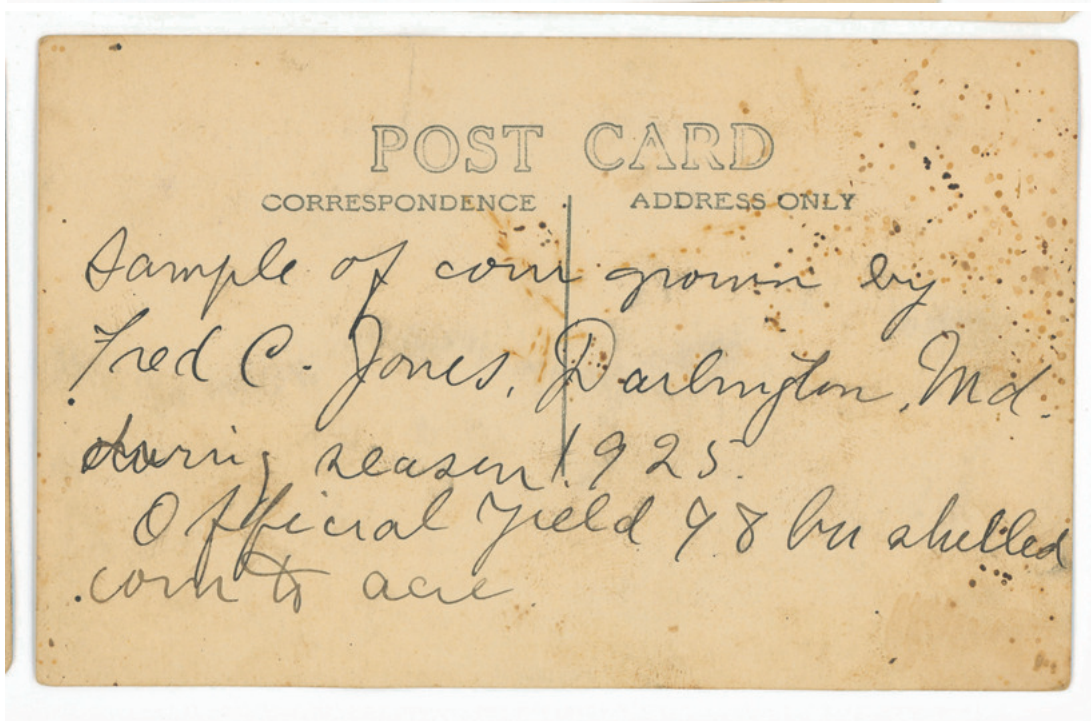 POST CARD
CORRESPONDENCE ADDRESS ONLY
Sample of corn grown by
Fred C. Jones, Darlington, Md.
during season 1925.
Official yield 98 bu shelled
corn to acre